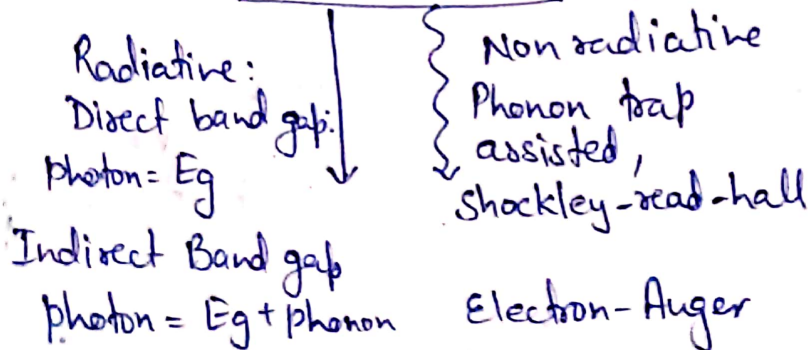 Radiative:
Direct band gap:
photon = Eg
Indirect Band gap
photon = Eg + phonon
Non radiative
Phonon trap
assisted,
Shockley-read-hall
Electron-Auger